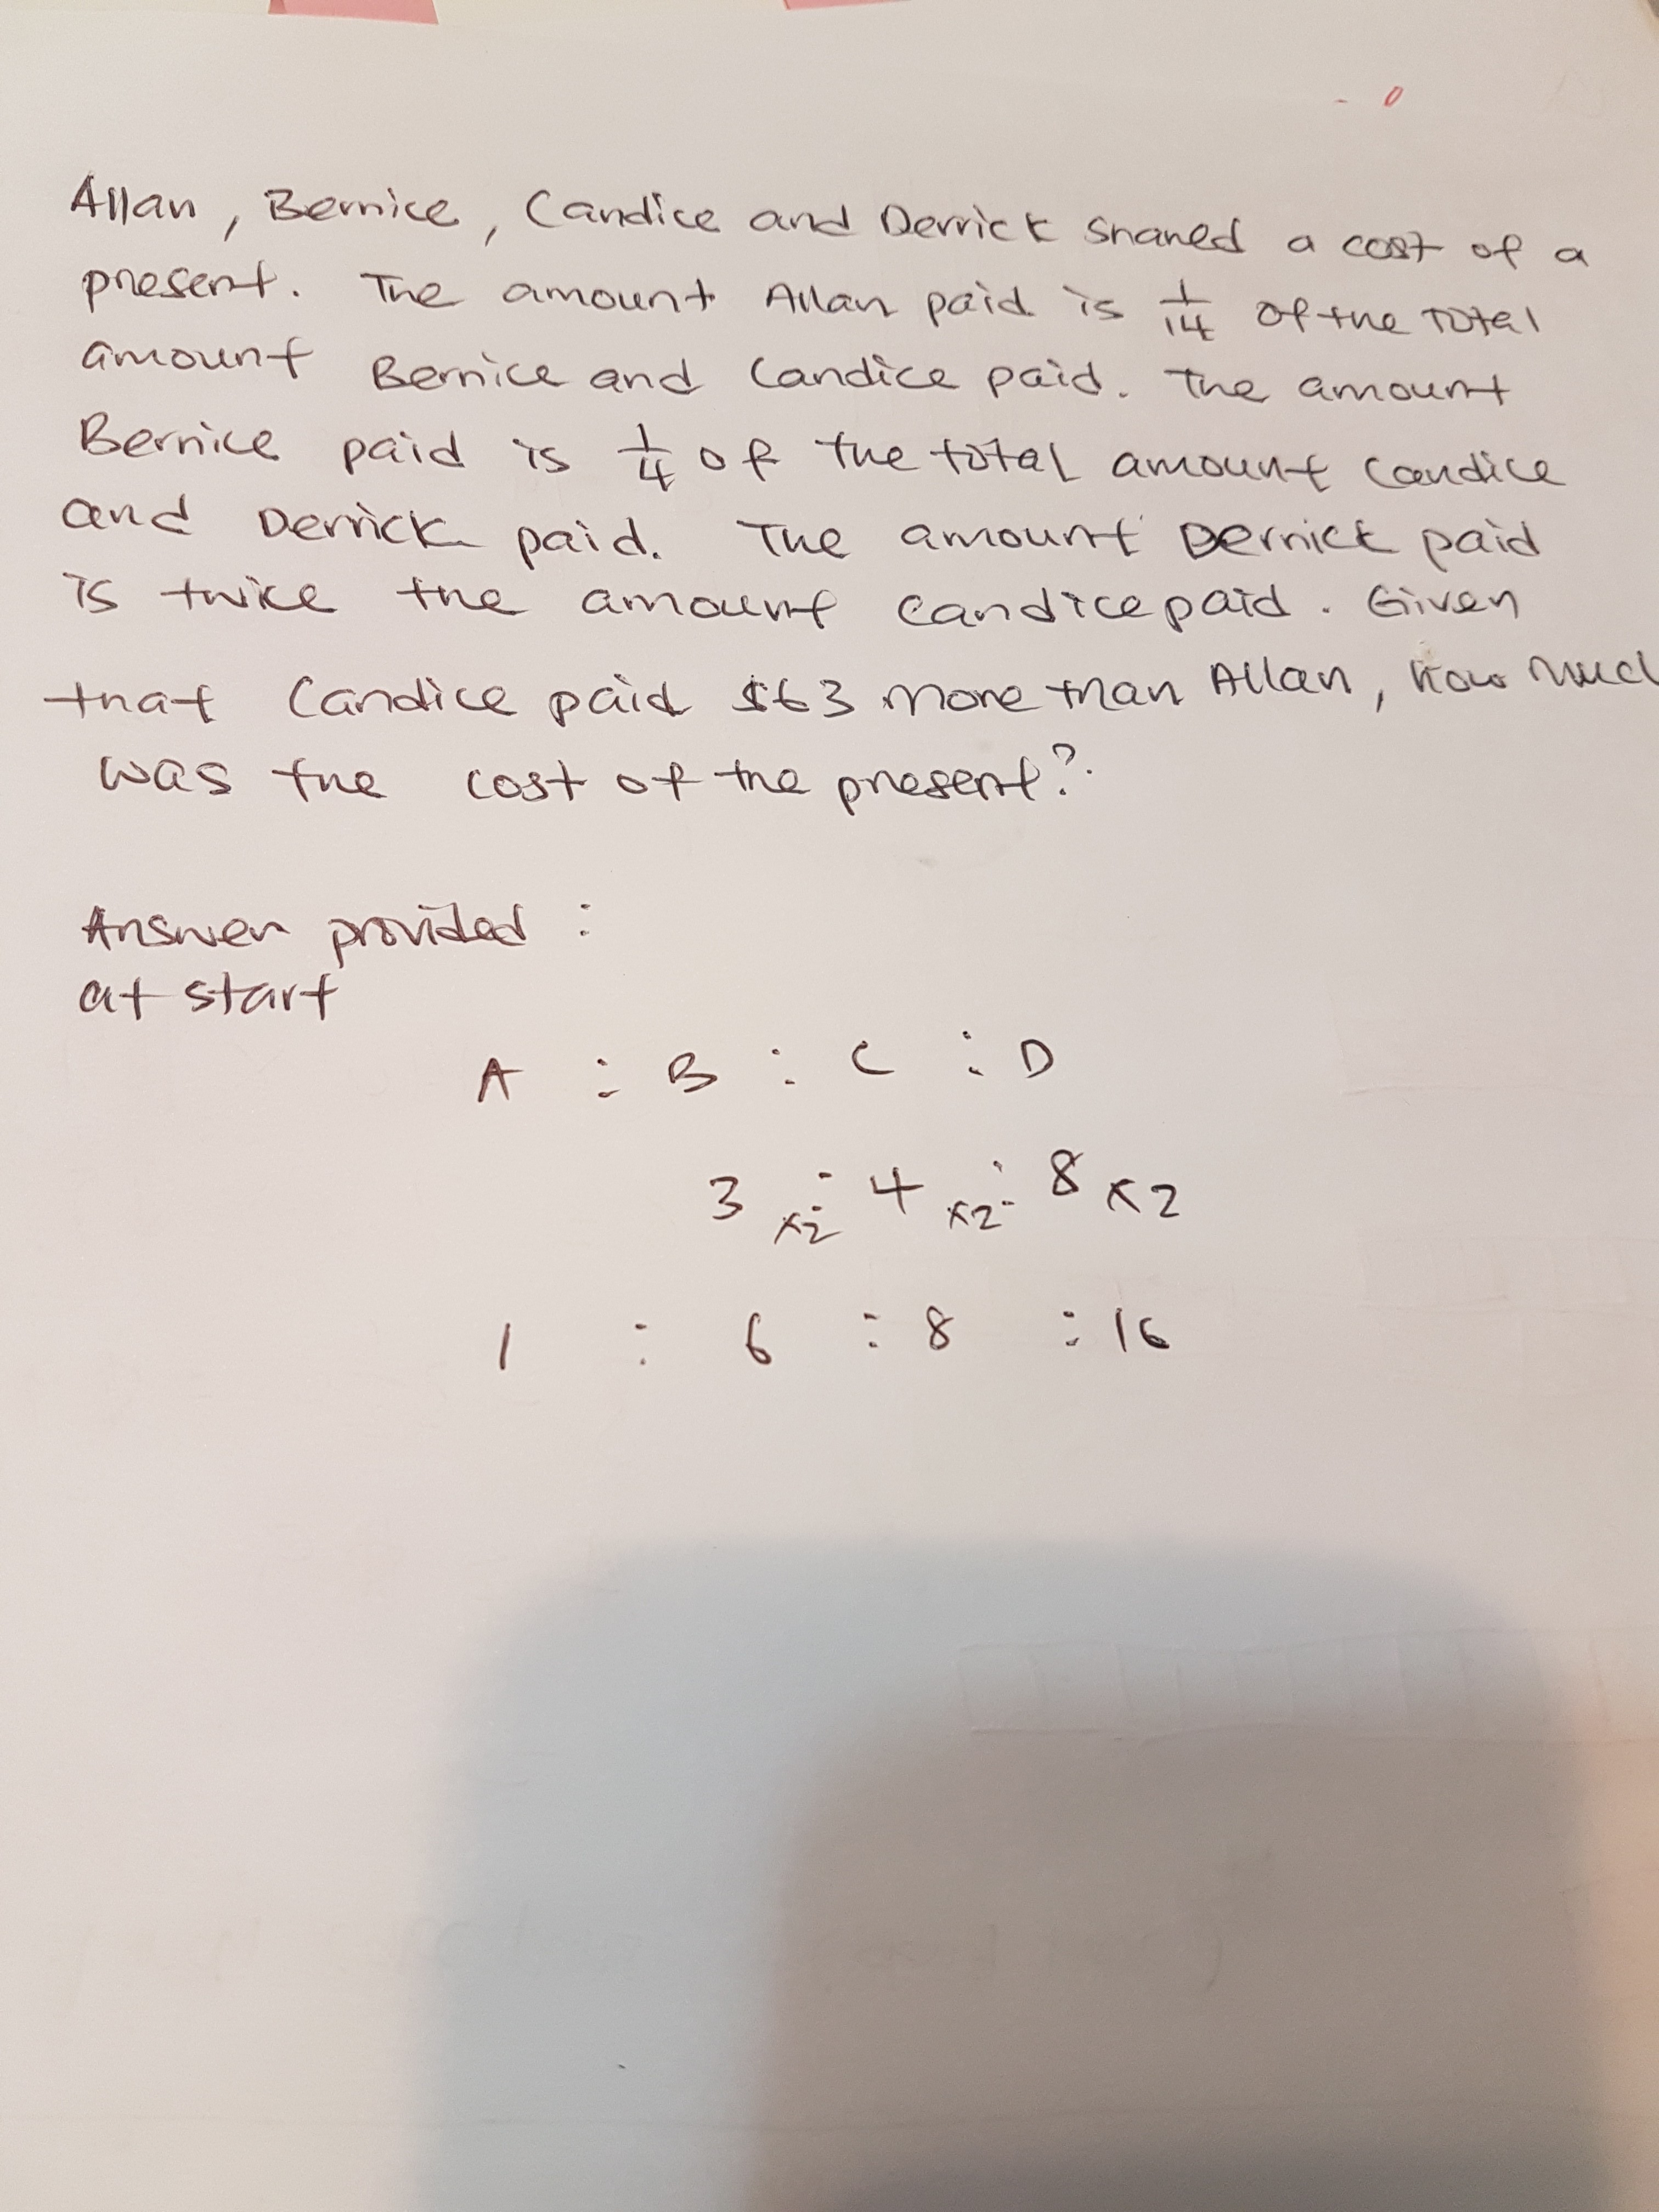 Allan, Bernice, Candice and Derrick shared a cost of a
present. The amount Allan paid is 1/14 of the total
amount Bernice and Candice paid. The amount
Bernice paid is 1/4 of the total amount Candice
and Derrick paid. The amount Derrick paid
is twice the amount Candice paid. Given
that Candice paid $63 more than Allan, how much
was the cost of the present?
Answer provided :
at start
A : B : C : D
3 x2 : 4 x2 : 8 x2
1 : 6 : 8 : 16